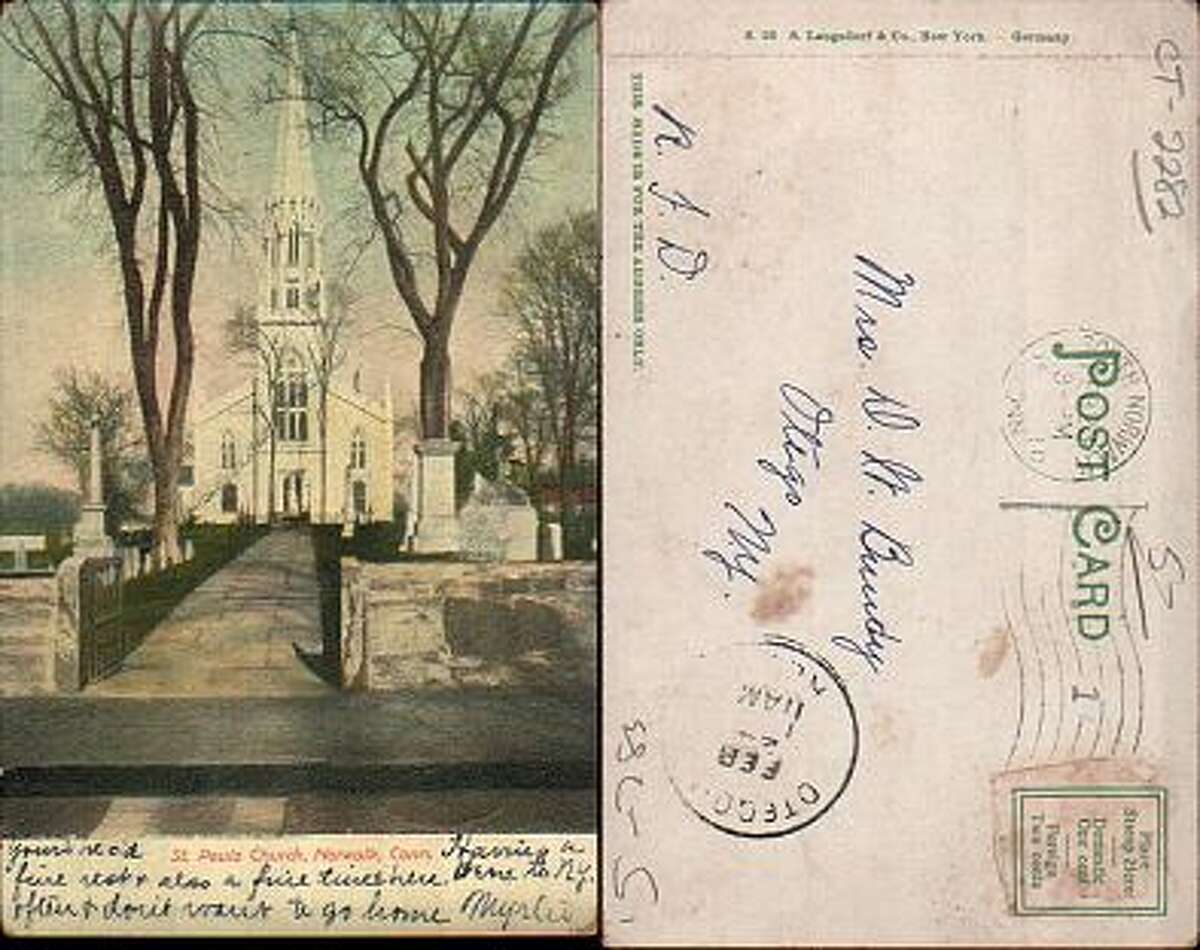 St. Pauls Church, Norwalk, Conn.
yours rec'd Having a
fine rest & also a fine time here. Come to N.Y.
often & don't want to go home Myrtie
S. 28 S. Langsdorf & Co., New York. - Germany
THIS SIDE IS FOR THE ADDRESS ONLY.
CT-2282
POST CARD
R. F. D.
Mrs. D. W. Bundy
Otego
N.Y.
OTEGO,
FEB
11 AM
NORW
1
Place
Stamp Here
Domestic
One cent
Foreign
Two cents